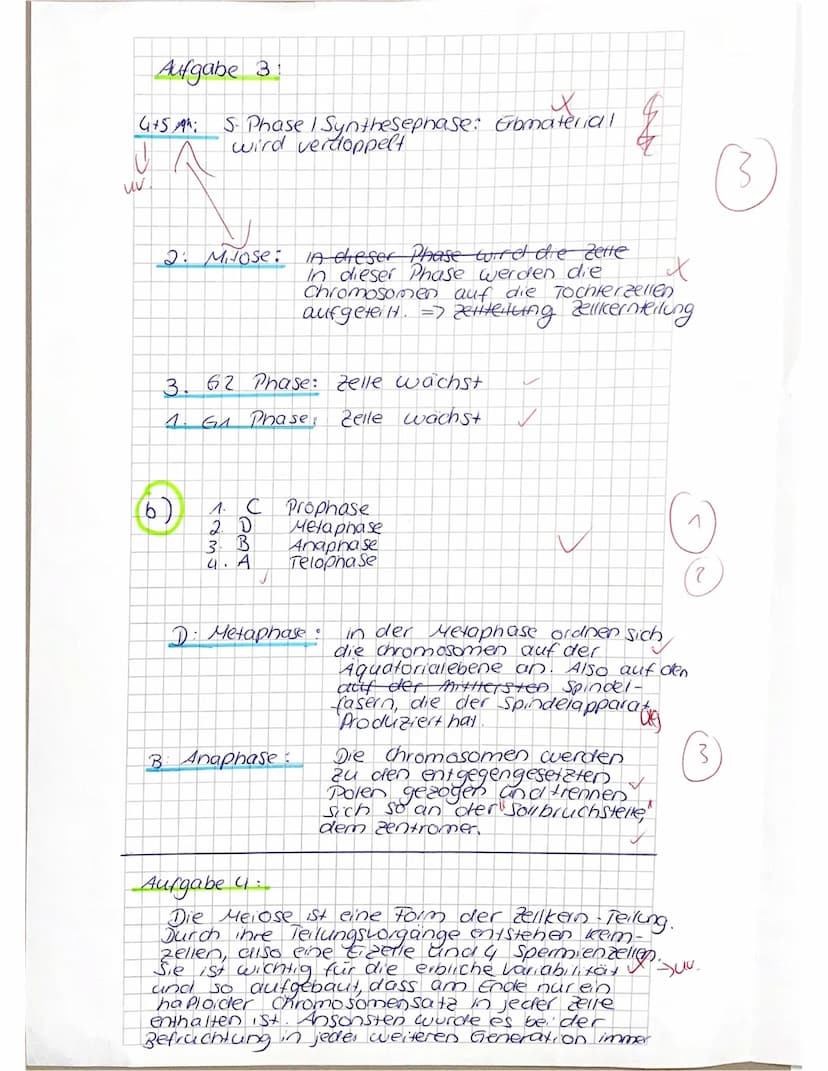 Aufgabe 3:
4+5 Ph: S-Phase / Synthesephase: Erbmaterial
wird verdoppelt
uv.
3
2: Mitose: in dieser Phase wird die Zelle
In dieser Phase werden die
Chromosomen auf die Tochterzellen
aufgeteilt. => Zellteilung Zellkernteilung
3. G2 Phase: Zelle wächst
1. G1 Phase: Zelle wächst
b) 1. C Prophase
2. D Metaphase
3. B Anaphase
4. A Telophase
1
2
D: Metaphase: in der Metaphase ordnen sich
die Chromosomen auf der
Äquatorialebene an. Also auf den
auf der mittlersten Spindel-
fasern, die der Spindelapparat
Produziert hat.
B: Anaphase: Die Chromosomen werden
zu den entgegengesetzten
Polen gezogen und trennen
sich so an der "Sollbruchstelle,"
dem Zentromer.
3
Aufgabe 4:
Die Meiose ist eine Form der Zellkern-Teilung.
Durch ihre Teilungsvorgänge entstehen Keim-
zellen, also eine Eizelle und 4 Spermienzellen.
Sie ist wichtig für die erbliche Variabilität →uv.
und so aufgebaut, dass am Ende nur ein
haploider Chromosomensatz in jeder Zelle
enthalten ist. Ansonsten würde es bei der
Befruchtung in jeder weiteren Generation immer